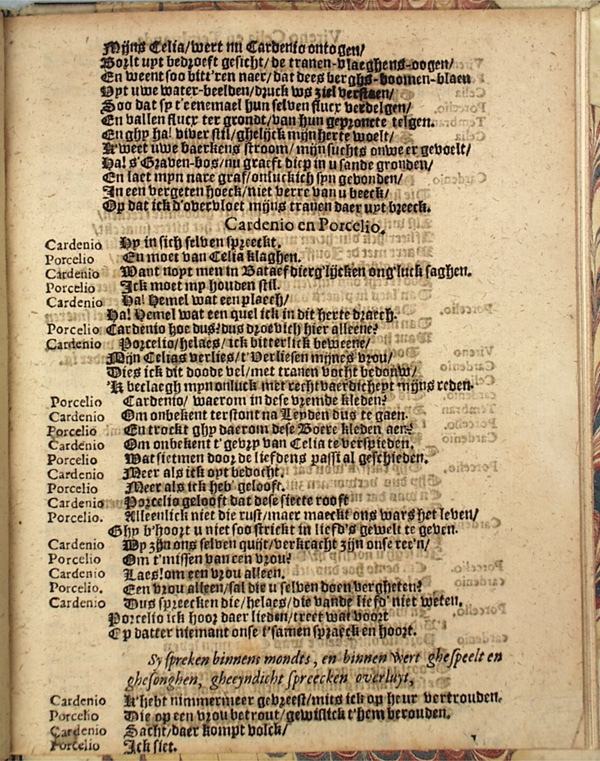 Mijns Celia/wert nu Cardenio ontogen/
Borlt uyt bedroeft gesicht/de tranen-vlaeghens-oogen/
En weent soo bitt'ren naer/dat dees berghs-boomen-blaen
Uyt uwe water-beelden/druck ws ziel verstaen/
Soo dat sy t'eenemael hun selven flucx verdelgen/
En vallen flucx ter grondt/van hun geproncte telgen.
En ghy ha! viver stil/ghelijck mijn herte woelt/
K'weet uwe baerkens stroom/mijn suchts onweer gevoelt/
Ha! s'Graven-bos/nu graeft diep in u sande gronden/
En laet mijn nare graf/onluckich syn gevonden/
In een vergeten hoeck/niet verre van u beeck/
Op dat ick d'overvloet mijns tranen daer uyt breeck.
Cardenio en Porcelio.
Cardenio Hy in sich selven spreeckt.
Porcelio En moet van Celia klaghen.
Cardenio Want noyt men in Bataef dierg'lijcken ong'luck saghen.
Porcelio Ick moet my houden stil.
Cardenio Ha! Hemel wat een plaech/
Ha! Hemel wat een quel ick in dit herte draech.
Porcelio Cardenio hoe dus? dus droevich hier alleene?
Cardenio Porcelio/helaes/ick bitterlick beweene/
Mijn Celias verlies/t'Verliesen mijnes vrou/
Dies ick dit doode vel/met tranen vocht bedouw/
'K beclaegh mijn onluck met rechtvaerdicheyt mijns reden.
Porcelio Cardenio/waerom in dese vremde kleden?
Cardenio Om onbekent terstont na Leyden dus te gaen.
Porcelio En trockt ghy daerom dese Boere kleden aen?
Cardenio Om onbekent t'gevry van Celia te verspieden.
Porcelio Wat sietmen door de liefdens passi al geschieden.
Cardenio Meer als ick oyt bedocht.
Porcelio Meer als ick heb' gelooft.
Cardenio Porcelio gelooft dat dese siecte rooft
Porcelio. Alleenlick niet die rust/maer maeckt ons wars het leven/
Ghy b'hoort u niet soo strickt in liefd's gewelt te geven.
Cardenio Wy zijn ons selven quijt/verkracht zijn onse ree'n/
Porcelio Om t'missen van een vrou?
Cardenio Laes! om een vrou alleen.
Porcelio. Een vrou alleen/sal die u selven doen vergheten?
Cardenio Dus spreecken die/helaes/die vande liefd' niet weten.
Porcelio ick hoor daer lieden/treet wat voort
Op datter niemant onse t'samen spraeck en hoort.
Sy spreken binnens mondts, en binnen wert ghespeelt en
ghesonghen, gheeyndicht spreecken overluyt,
Cardenio K'hebt nimmermeer gevreest/mits ick op heur vertrouden.
Porcelio Die op een vrou betrout/gewislick t'hem berouden.
Cardenio Sacht/daer kompt volck/
Porcelio Ick siet.